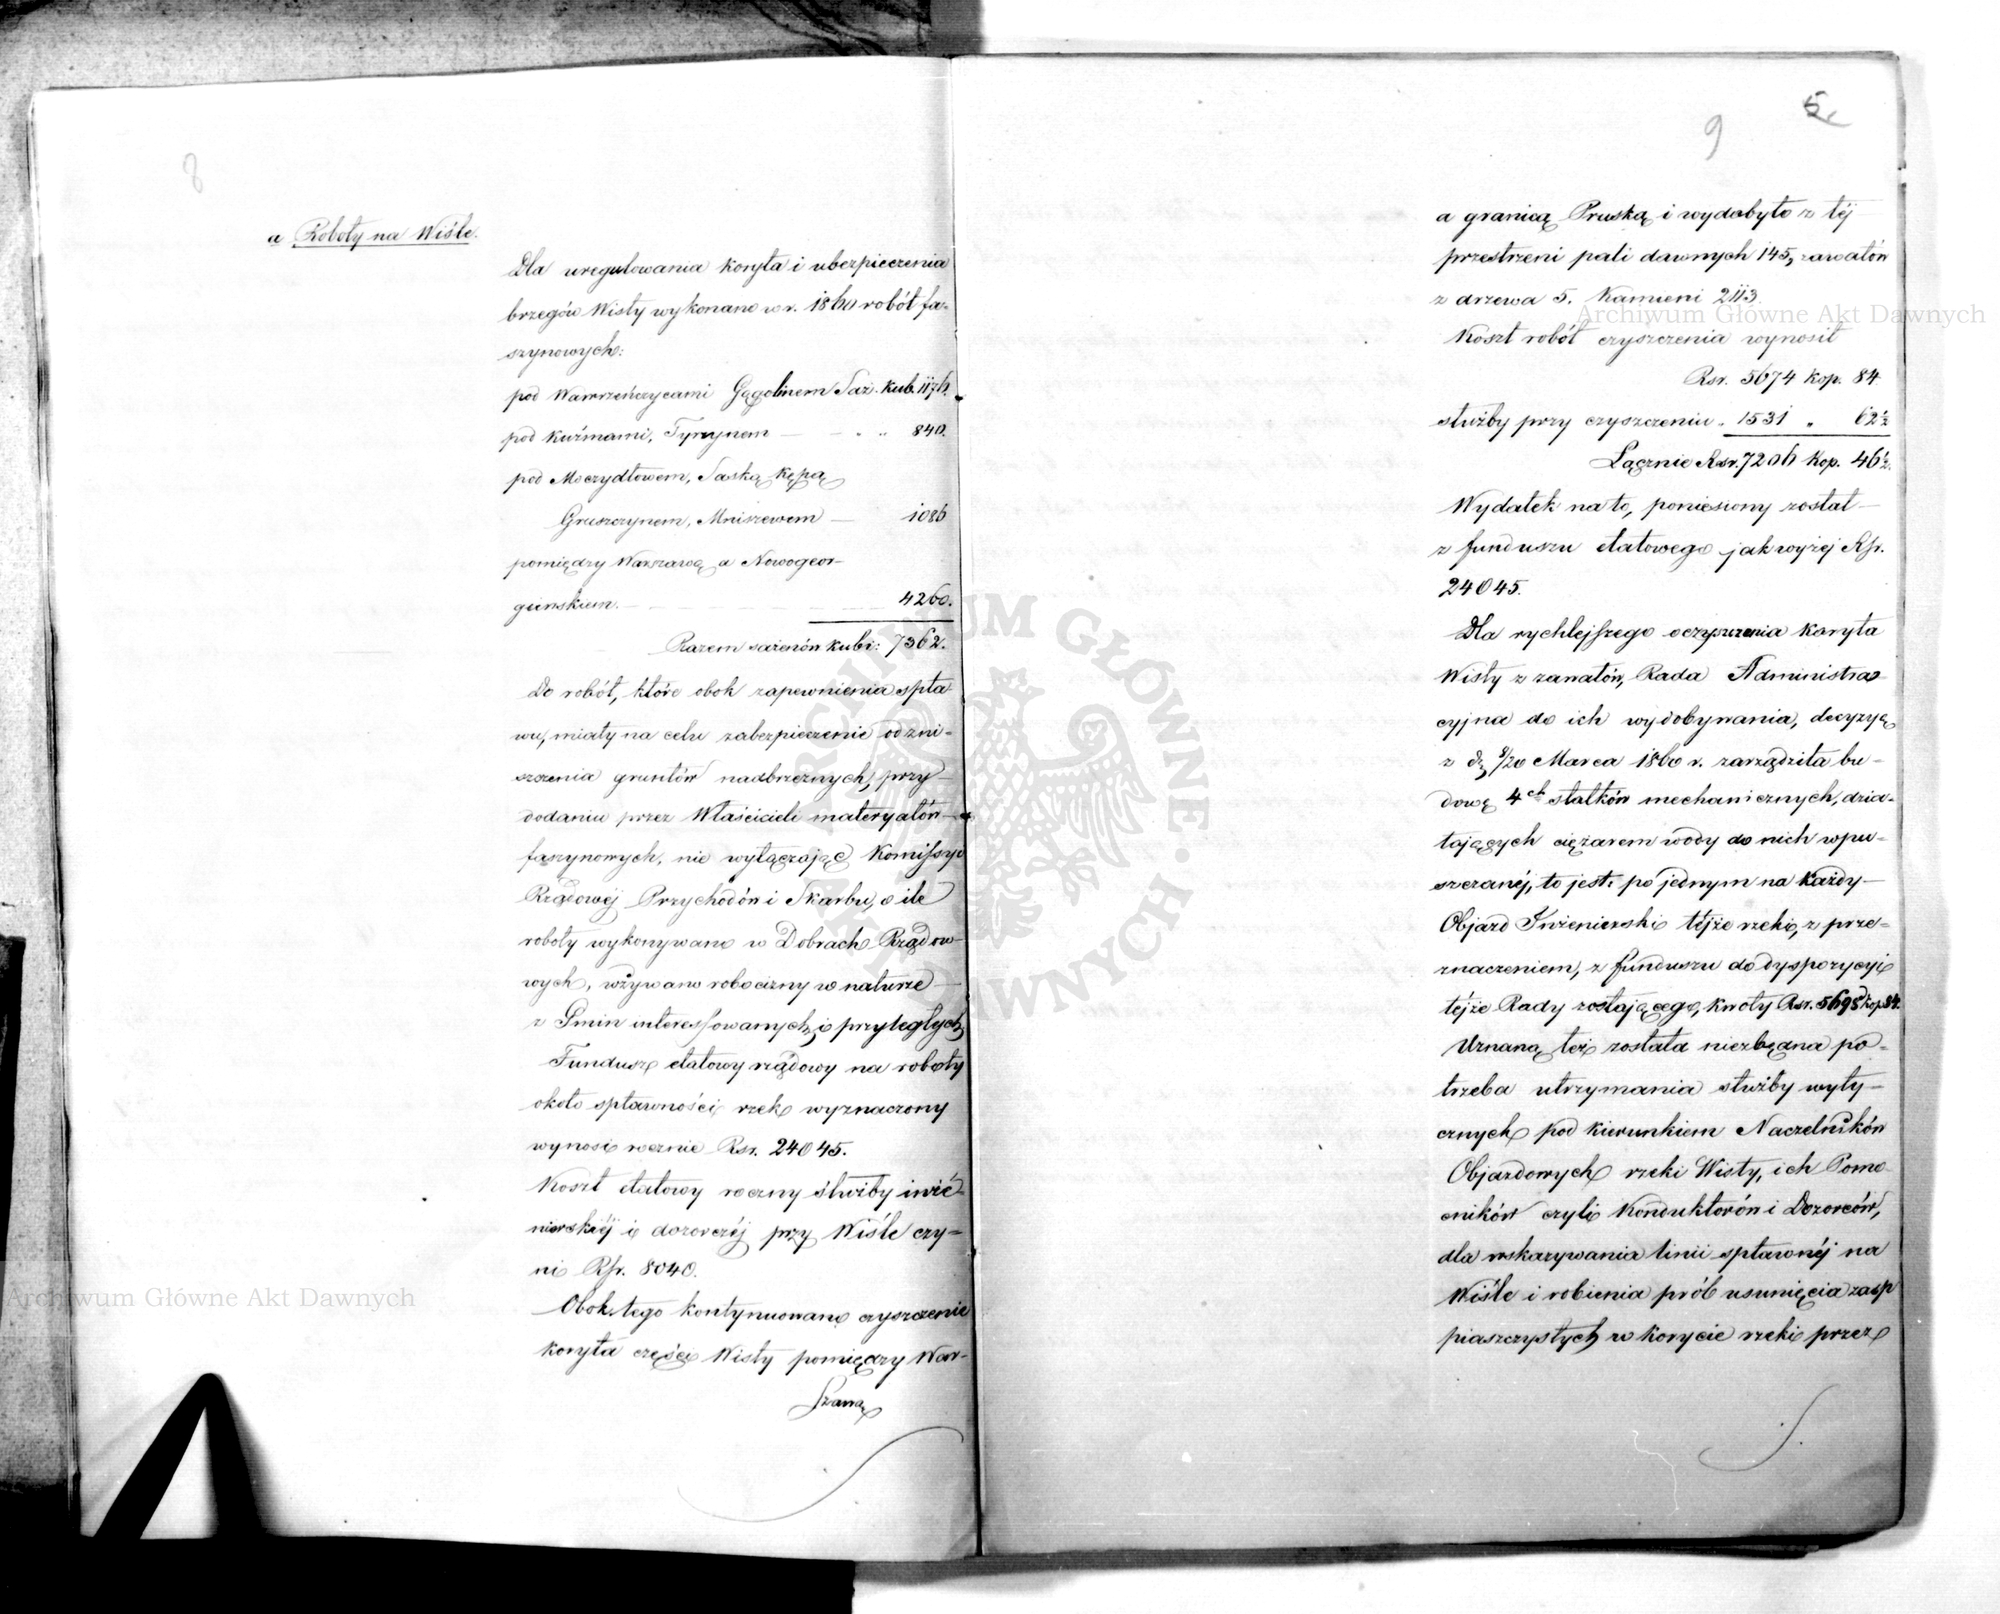 8
a Roboty na Wiśle.
Dla uregulowania koryta i ubezpieczenia
brzegów Wisły wykonano w r. 1860 robót fa-
szynowych:
pod Wawrzeńczycami Gągolinem Saż. kub. 1176.
pod Kuźmami, Tyrzynem — „ „ 840.
pod Moczydłowem, Saską Kępą
Gruszczynem, Mniszewem — 1086
pomiędzy Warszawą a Nowogeor-
gieńskiem. — 4260.
Razem sażenów kubi: 7362.
Do robót, które obok zapewnienia spła-
wu, miały na celu zabezpieczenie od zni-
szczenia gruntów nadbrzeżnych, przy
dodaniu przez Właścicieli materyałów
faszynowych, nie wyłączając Komissyi
Rządowéj Przychodów i Skarbu, o ile
roboty wykonywano w Dobrach Rządo-
wych, używano robocizny w naturze
z Gmin interessowanych i przyległych
Fundusz etatowy rządowy na roboty
około spławności rzek wyznaczony
wynosi rocznie Rsr. 24045.
Koszt etatowy roczny służby inże-
nierskiéj i dozorczéj przy Wiśle czy-
ni Rsr. 8040.
Obok tego kontynuowano czyszczenie
koryta części Wisły pomiędzy War-
szawą
9
5
a granicą Pruską i wydobyto z téj
przestrzeni pali dawnych 145, zawałów
z drzewa 5. Kamieni 2113.
Koszt robót czyszczenia wynosił
Rsr. 5674 kop. 84
służby przy czyszczeniu „ 1531 „ 62½
Łącznie Rsr. 7206 Kop. 46½.
Wydatek na to, poniesiony został
z funduszu etatowego jak wyżej Rsr.
24045.
Dla rychlejszego oczyszczenia koryta
Wisły z zawałów, Rada Administra-
cyjna do ich wydobywania, decyzyą
z d. 8/20 Marca 1860 r. zarządziła bu-
dowę 4ch statków mechanicznych, dzia-
łających ciężarem wody do nich wpu-
szczanéj, to jest: po jednym na każdy
Objazd Inżenierski téjże rzeki, z prze-
znaczeniem, z funduszu do dyspozycyi
téjże Rady zostającego, kwoty Rsr. 5695 kop. 84.
Uznaną też została niezbędna po-
trzeba utrzymania służby wyty-
cznych pod kierunkiem Naczelników
Objazdowych rzeki Wisły, ich Pomo-
cników czyli Konduktorów i Dozorców,
dla wskazywania linii spławnéj na
Wiśle i robienia prób usunięcia zasp
piaszczystych w korycie rzeki przez
Archiwum Główne Akt Dawnych
Archiwum Główne Akt Dawnych
ARCHIWUM GŁÓWNE AKT DAWNYCH